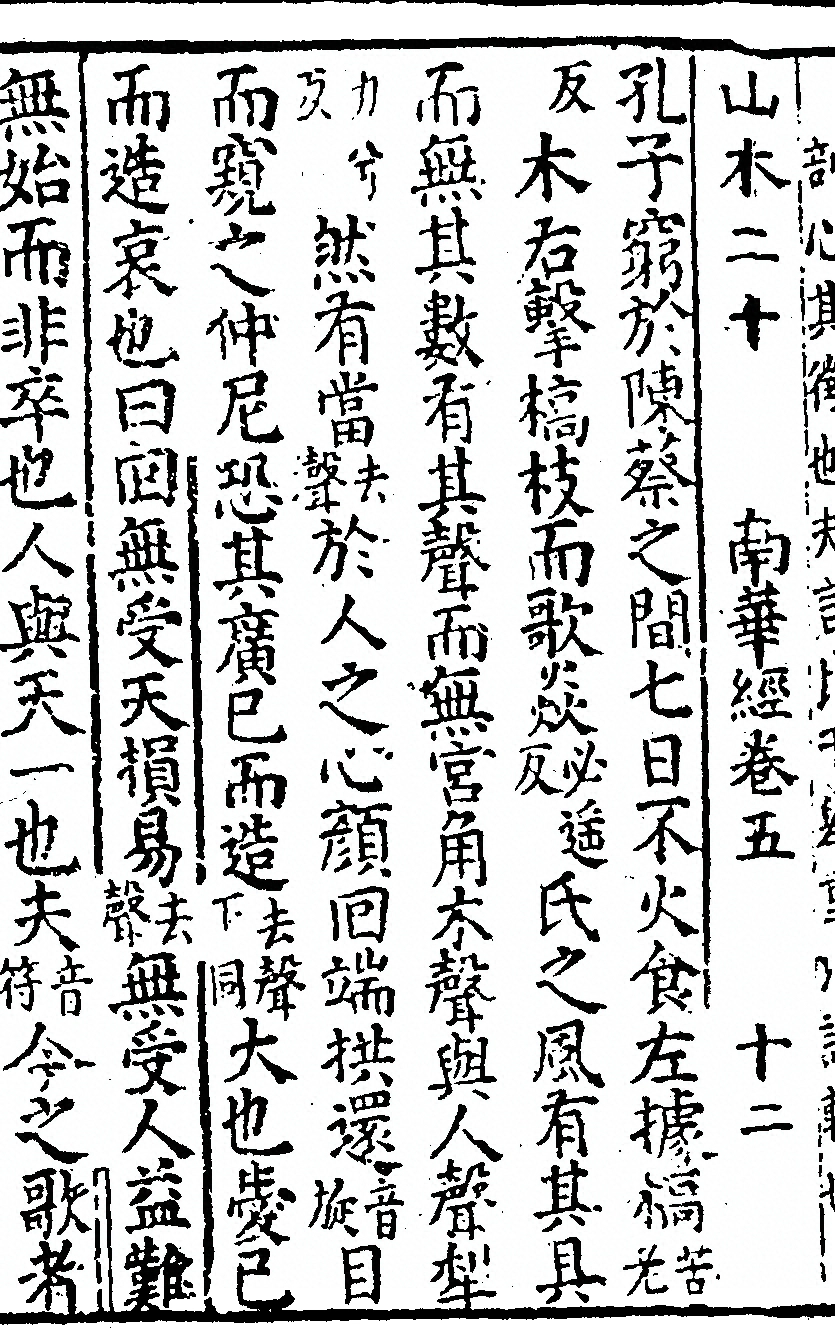 山木二十　南華經卷五　十二
孔子窮於陳蔡之間七日不火食左據槁苦老
反木右擊槁枝而歌焱必遥反氏之風有其具
而無其數有其聲而無宮角木聲與人聲犁
力兮反然有當去聲於人之心顔回端拱還音旋目
而窺之仲尼恐其廣己而造去聲下同大也愛己
而造哀也曰回無受天損易去聲無受人益難
無始而非卒也人與天一也夫音符今之歌者